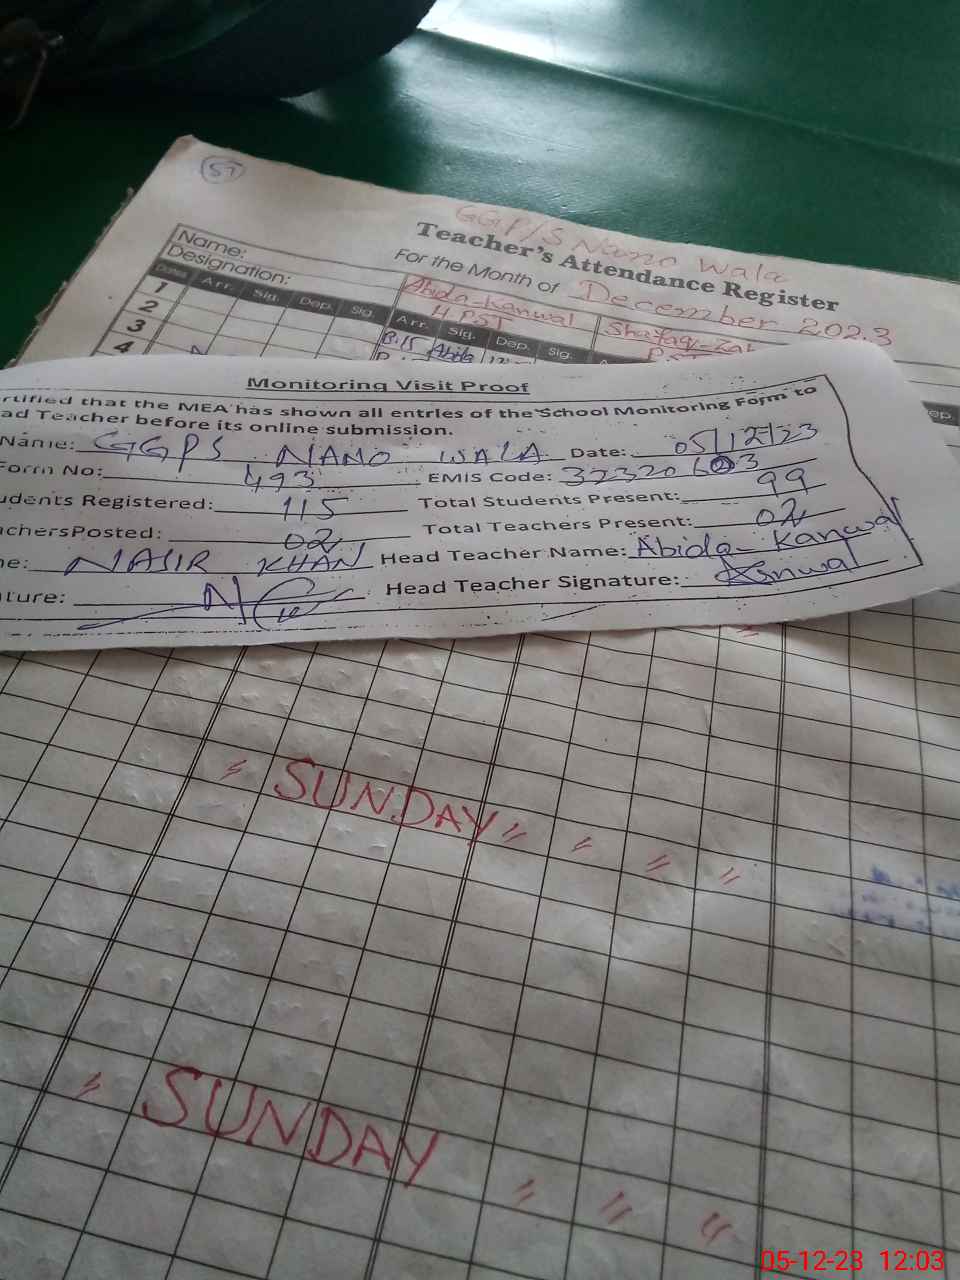 57
GGP/S Nano Wala
Teacher's Attendance Register
For the Month of December 2023
Name:
Designation:
Abida-Kanwal
H.PST
Dates Arr. Sig. Dep. Sig. Arr. Sig. Dep. Sig.
1
2
3
4
8:15 Abida
Monitoring Visit Proof
rtified that the MEA has shown all entries of the School Monitoring Form to
ad Teacher before its online submission.
Name: GGPS NANO WALA Date: 05/12/23
Form No: 493 EMIS Code: 32320603
udents Registered: 115 Total Students Present: 99
achersPosted: 02 Total Teachers Present: 02
ne: NASIR KHAN Head Teacher Name: Abida-Kanwal
ature: Head Teacher Signature: Kanwal
" SUNDAY " " " "
" SUNDAY " " "
05-12-23 12:03